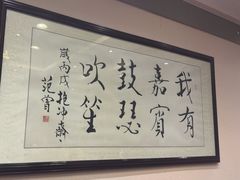 我有
嘉賓
鼓瑟
吹笙
歲丙戌抱冲齋
范曾